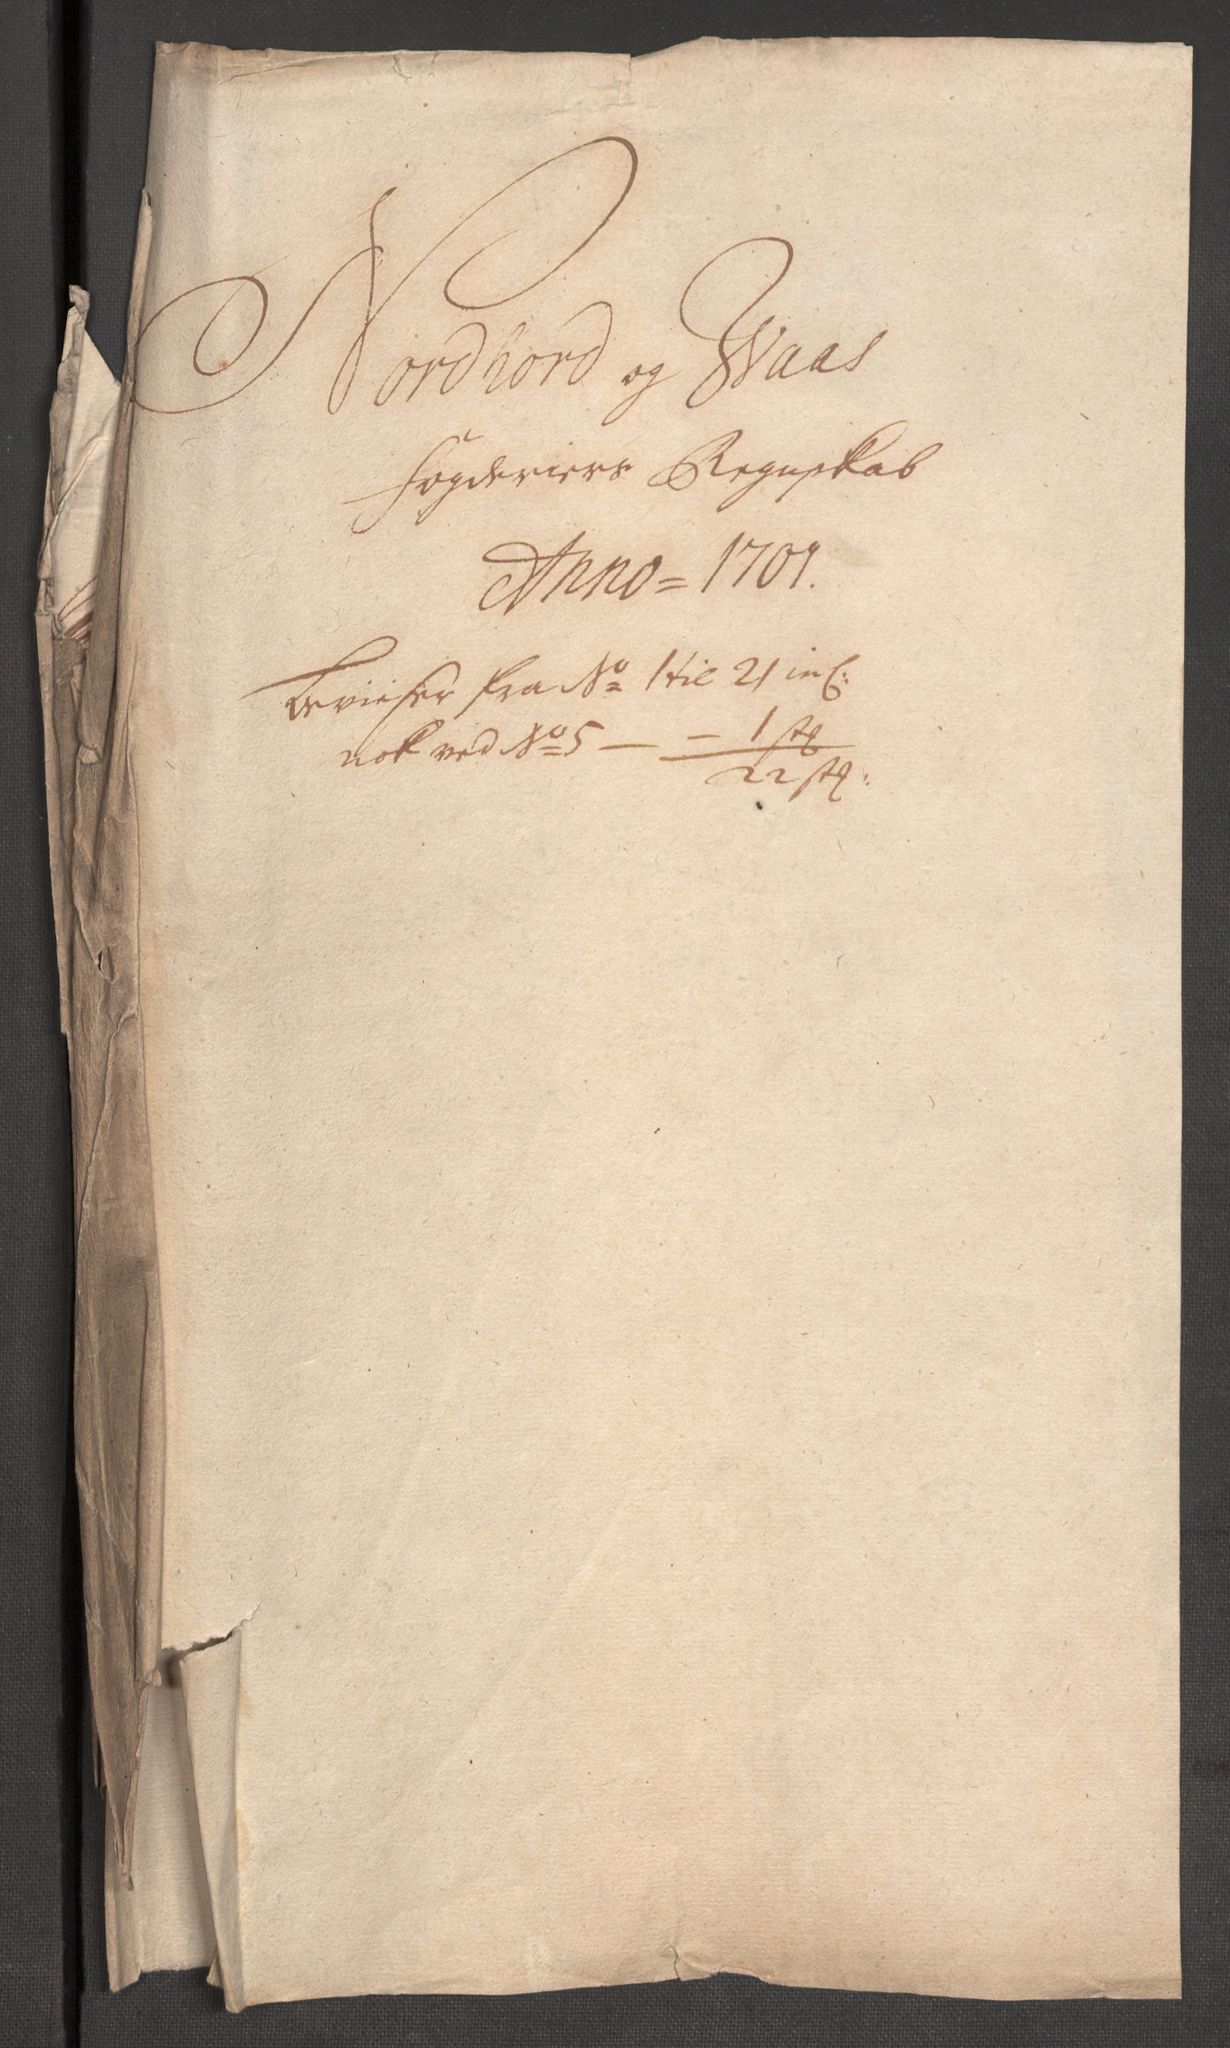 Nordhord og Waas
fogderiers Regnskab
Anno = 1701.
bevieser fra No 1 til 21 incl:
nok ved No 5 — — 1 stk
22 stk: